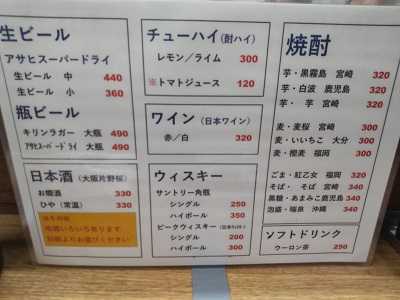 生ビール
アサヒスーパードライ
生ビール 中 440
生ビール 小 360
瓶ビール
キリンラガー 大瓶 490
アサヒスーパードライ 大瓶 490
日本酒 (大阪片野桜)
お燗酒 330
ひや (常温) 330
地酒いろいろあります
別紙よりお選びください
チューハイ (酎ハイ)
レモン/ライム 300
※トマトジュース 120
ワイン (日本ワイン)
赤/白 320
ウィスキー
サントリー角瓶
シングル 250
ハイボール 350
ピークウィスキー
シングル 200
ハイボール 300
焼酎
芋・黒霧島 宮崎 320
芋・白波 鹿児島 320
芋・ 芋 宮崎 340
麦・麦桜 宮崎 300
麦・いいちこ 大分 300
麦・樫麦 福岡 300
ごま・紅乙女 福岡 320
そば・ そば 宮崎 340
黒糖・あまみこ 鹿児島 340
泡盛・瑞泉 沖縄 340
ソフトドリンク
ウーロン茶 250